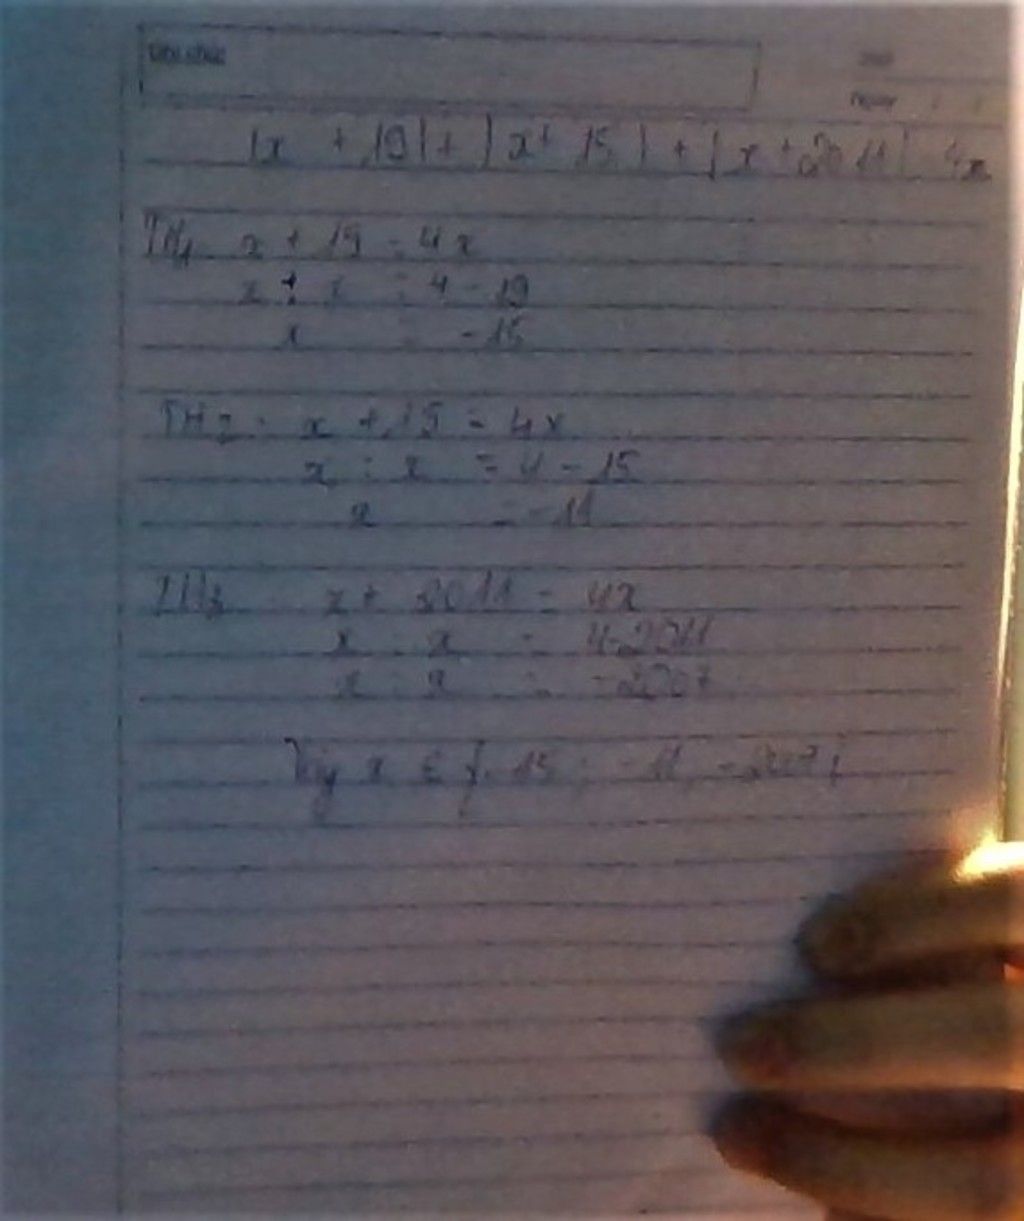 |x + 19| + |x + 15| + |x + 2011| 4x
TH1 x + 19 = 4x
x : x = 4 - 19
x = -15
TH2 : x + 15 = 4x
x : x = 4 - 15
x = -11
TH3 x + 2011 = 4x
x : x = 4 - 2011
x : x = -2007
Vậy x ∈ {-15 ; -11 -2007}